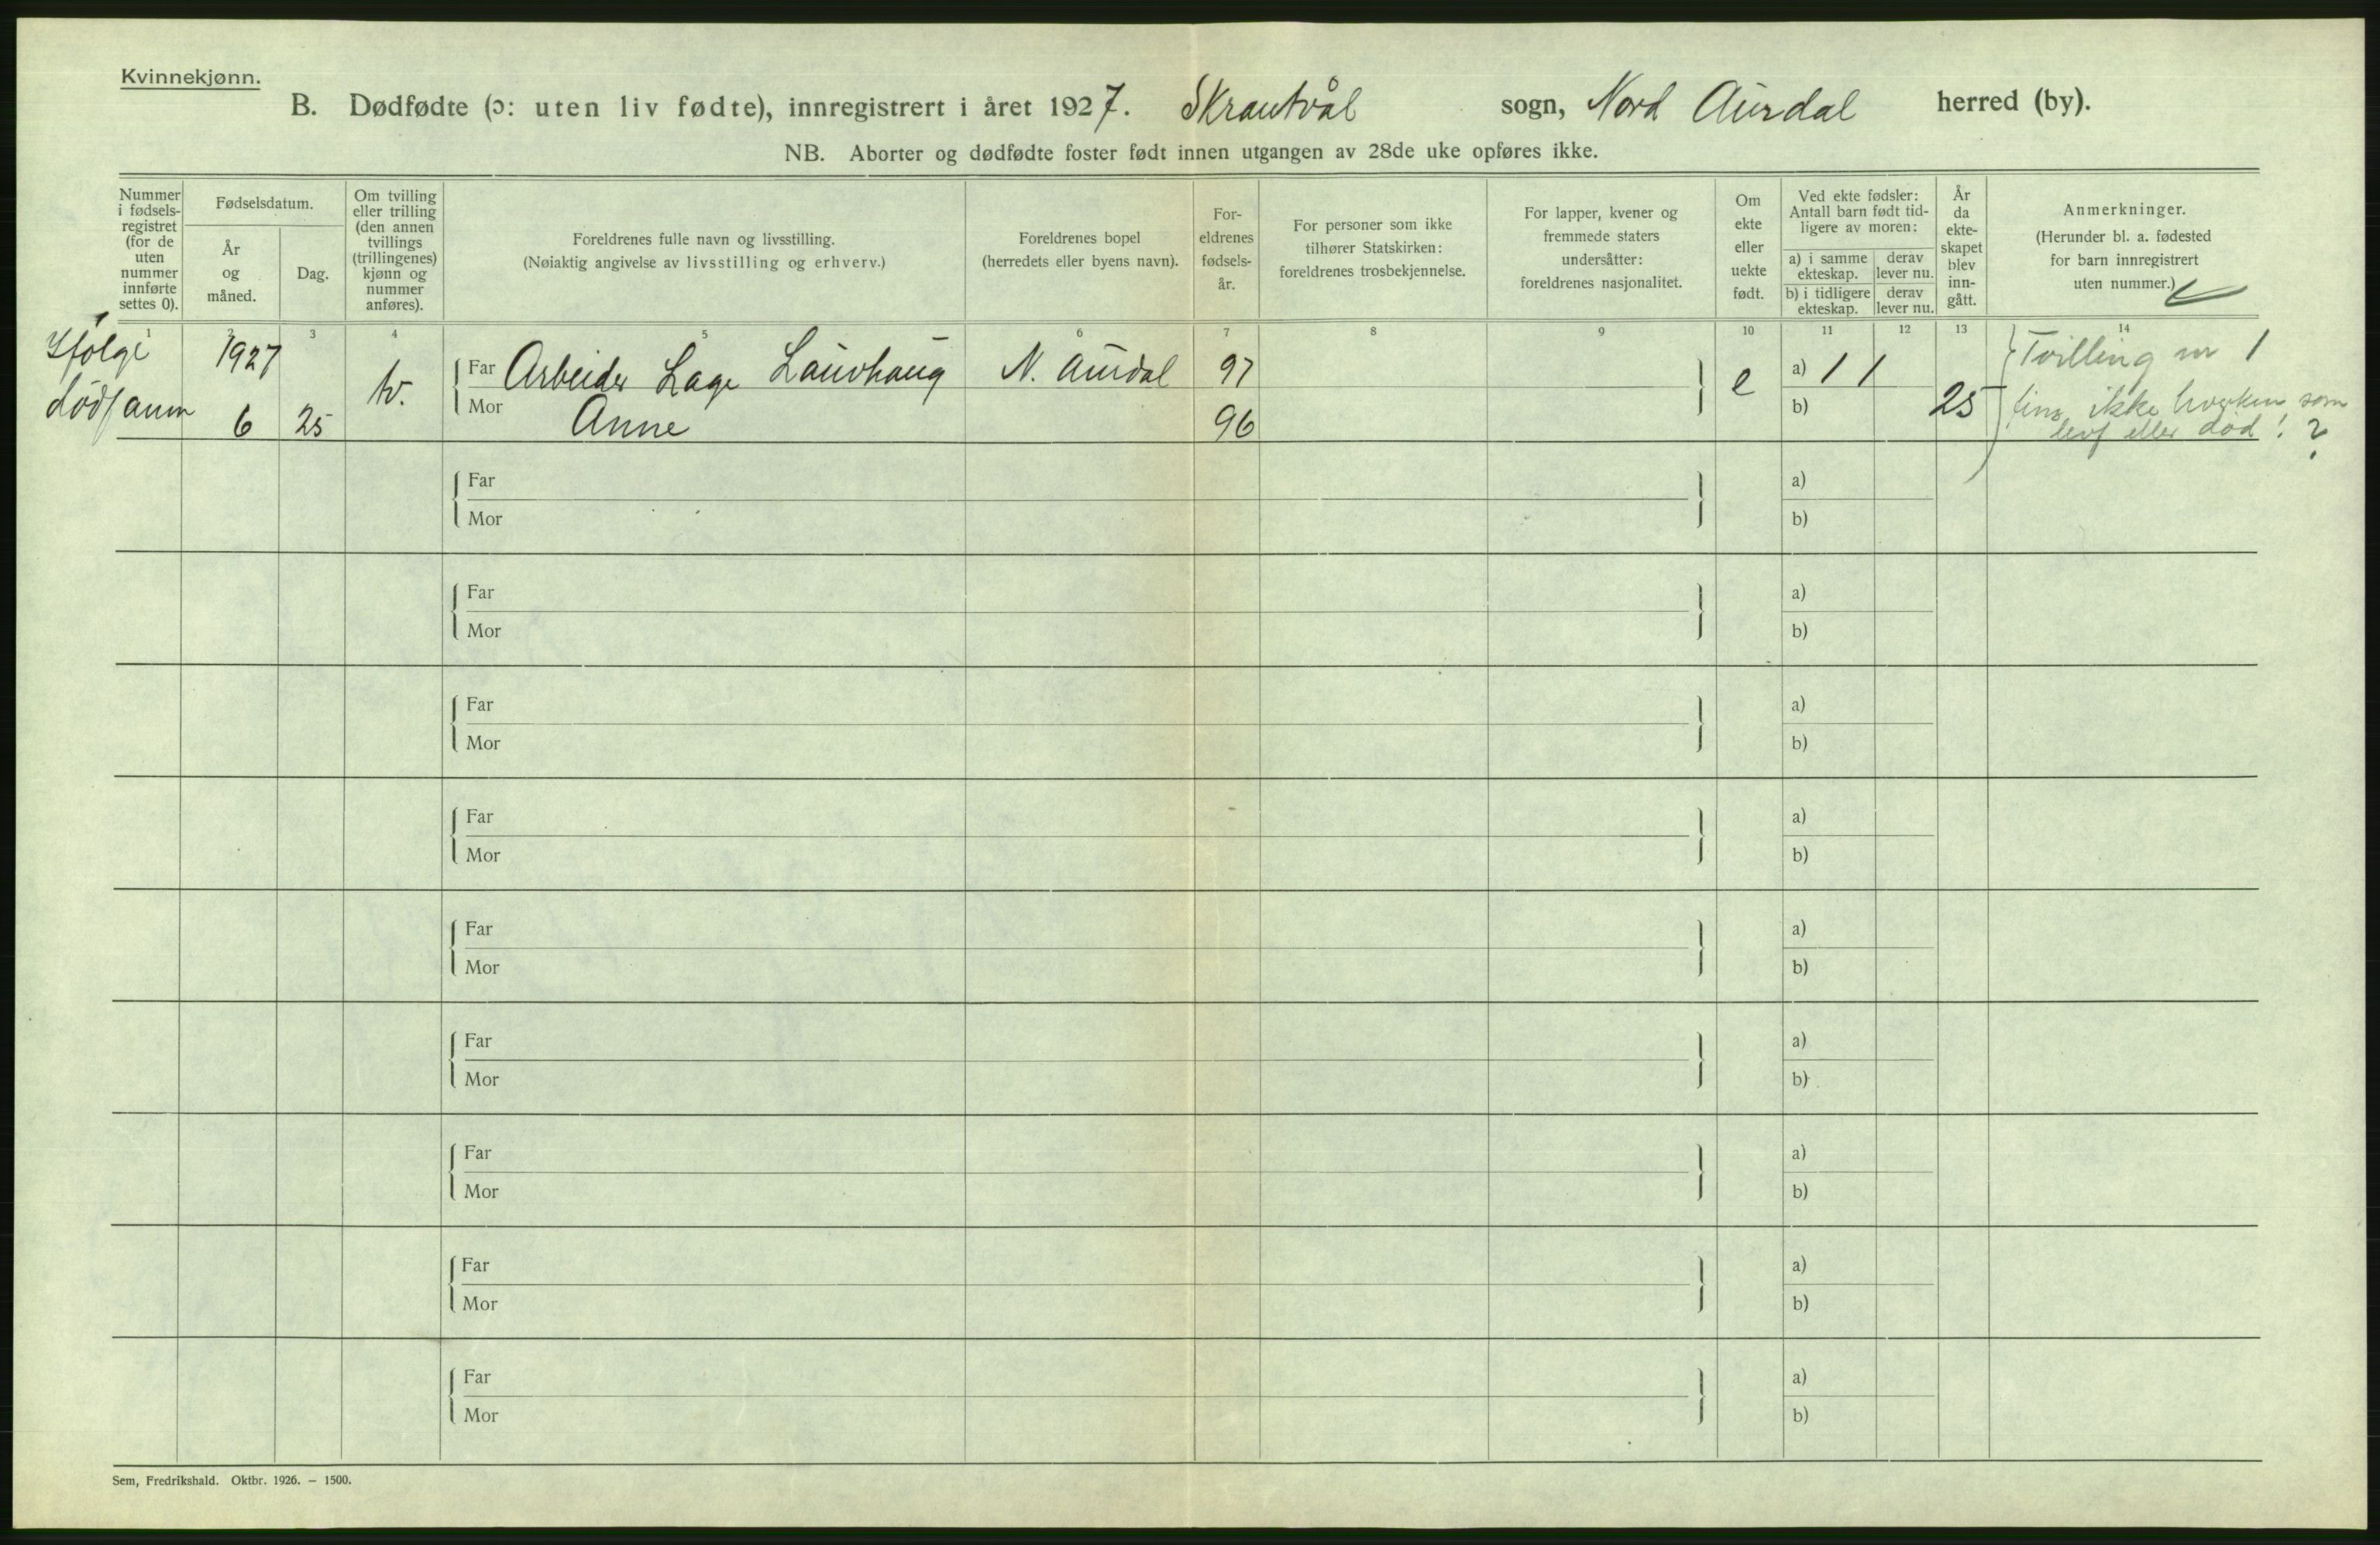 Kvinnekjønn.
B. Dødfødte (ɔ: uten liv fødte), innregistrert i året 1927. Skrautvål sogn, Nord Aurdal herred (by).
NB. Aborter og dødfødte foster født innen utgangen av 28de uke opføres ikke.
Nummer
i fødsels-
registret
(for de
uten
nummer
innførte
settes 0).
Fødselsdatum.
År
og
måned.
Dag.
Om tvilling
eller trilling
(den annen
tvillings
(trillingenes)
kjønn og
nummer
anføres).
Foreldrenes fulle navn og livsstilling.
(Nøiaktig angivelse av livsstilling og erhverv.)
Foreldrenes bopel
(herredets eller byens navn).
For-
eldrenes
fødsels-
år.
For personer som ikke
tilhører Statskirken:
foreldrenes trosbekjennelse.
For lapper, kvener og
fremmede staters
undersåtter:
foreldrenes nasjonalitet.
Om
ekte
eller
uekte
født.
Ved ekte fødsler:
Antall barn født tid-
ligere av moren:
a) i samme
ekteskap.
derav
lever nu.
b) i tidligere
ekteskap.
derav
lever nu.
År
da
ekte-
skapet
blev
inn-
gått.
Anmerkninger.
(Herunder bl. a. fødested
for barn innregistrert
uten nummer.)
1 2 3 4 5 6 7 8 9 10 11 12 13 14
Ifølge
dødsanm
1927
6 25
tv.
Far Arbeider Lage Lauvhaug N. Aurdal 97
Mor Anne 96
e
a) 1 1
b)
25
Tvilling nr 1
fins ikke hverken som
lev eller død! ?
Far a)
Mor b)
Far a)
Mor b)
Far a)
Mor b)
Far a)
Mor b)
Far a)
Mor b)
Far a)
Mor b)
Far a)
Mor b)
Far a)
Mor b)
Far a)
Mor b)
Sem, Fredrikshald. Oktbr. 1926. — 1500.